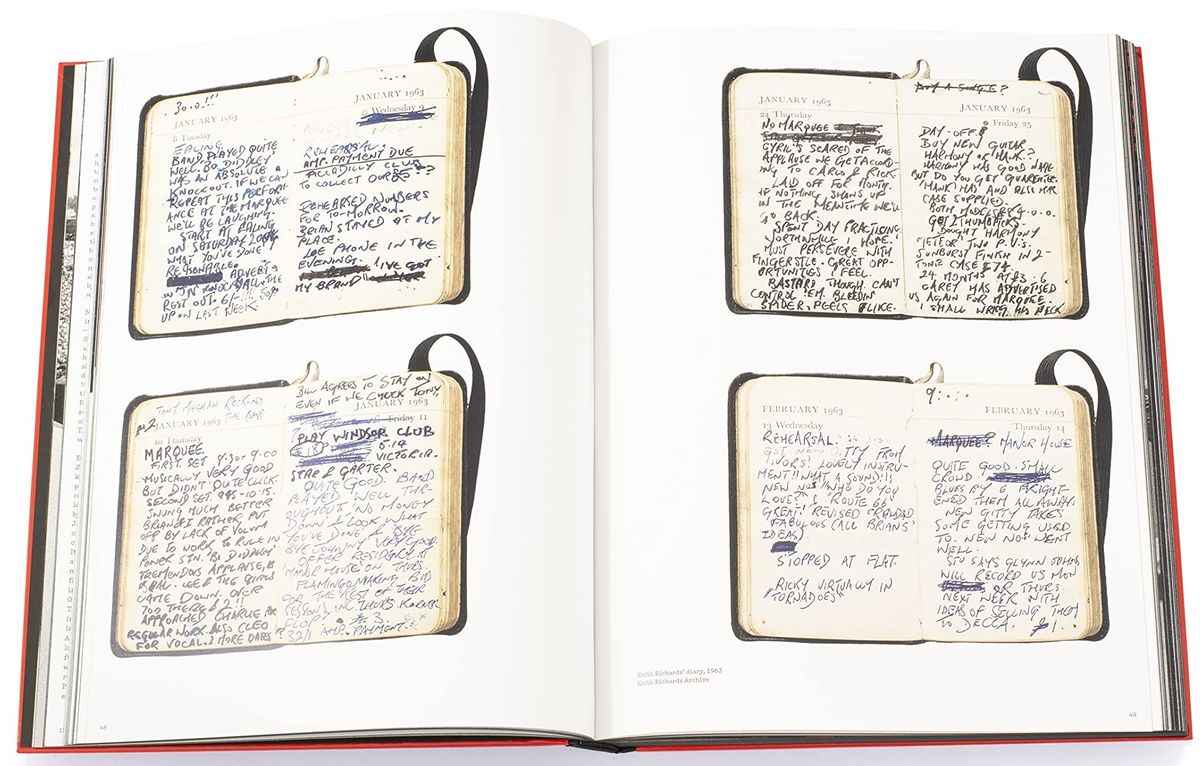 30.0.!!!
JANUARY 1963
8 Tuesday
EALING
BAND PLAYED QUITE
WELL. BO. DIDDLEY
WAS AN ABSOLUTE
KNOCKOUT. IF WE CAN
REPEAT THIS PERFORM-
ANCE AT THE MARQUEE
WE'LL BE LAUGHING.
START AT EALING
ON SATURDAY. LOOK
WHAT YOU'VE DONE
REASONABLE
ADVERT
REST OUT.
UPON LAST WEEK
JANUARY 1963
Wednesday 9
REHEARSAL
AMP. PAYMENT DUE
PICCADILLY CLUB
TO COLLECT OURDS??
REHEARSED NUMBERS
FOR TO-MORROW.
BRIAN STAYED AT MY
PLACE.
PHONE IN THE
EVENING.
I'VE GOT
MY BRAND
TONY MEEHAN
THE BAND.
JANUARY 1963
10 Thursday
MARQUEE.
FIRST. SET 8.30-9.00
MUSICALLY VERY GOOD
BUT DIDN'T QUITE CLICK.
SECOND SET. 9.45-10.15.
SWUNG MUCH BETTER
BRIAN & I RATHER PUT
OFF BY LACK OF VOLUM
DUE TO WORK TO RULE IN
POWER STN. BO DIDDLEY
TREMENDOUS APPLAUSE,
GURLS
CAME DOWN. OVER
TOO THERE
APPROACHED CHARLIE FOR
REGULAR WORK. ALSO CLEO
FOR VOCAL. MORE DATES?
BILL AGREES TO STAY ON
EVEN IF WE CHUCK TONY.
JANUARY 1963
Friday 11
PLAY WINDSOR CLUB
VICTORIA.
STAR & GARTER.
QUITE GOOD. BAND
PLAYED WELL THR-
OUGHOUT. NO MONEY
DOWN & LOOK WHAT
YOU'VE DONE & BYE
BYE JOHNNY VERY GOOD
OFFER OF RESIDENCY AT
MANOR HOUSE ON THURS
FLAMINGO MAKING BID
FOR THE REST OF THEIR
SESSIONS, INC. THURS. KORNER
FLOP.
PAYMENT.
JANUARY 1963
24 Thursday
NO MARQUEE
CYRIL'S SCARED OF THE
APPLAUSE WE GET ACCORD-
ING TO CARLO & RICK
LAID OFF FOR MONTH.
IF NOTHING SHOWN UP
IN THE MEANTIME WE'LL
GO BACK.
SPENT DAY PRACTISING.
WORTHWHILE I HOPE.
MUST PERSEVERE WITH
FINGERSTYLE. GREAT OPP-
ORTUNITIES I FEEL.
BASTARD THOUGH. CAN'T
CONTROL 'EM. BLEEDIN
SPIDER, FEELS LIKE.
BUY A SONG?
JANUARY 1963
Friday 25
DAY-OFF
BUY NEW GUITAR
HARMONY OR HAWK?
HARMONY HAS GOOD NAME
BUT DO YOU GET GUARANTEE.
HAWK HAS AND ALSO HAR
CASE SUPPLIED.
BOTH MODELS £84.0.0.
GOT THUMBPICKS.
BOUGHT HARMONY
'METEOR' TWO P.U.S.
SUNBURST FINISH IN 2-
TONE CASE £74
24 MONTHS AT £3.6
CAREY HAS ADVERTISED
US AGAIN FOR MARQUEE.
I SHALL WRING HIS NECK
FEBRUARY 1963
13 Wednesday
REHEARSAL.
GOT NEW GITTY FROM
IVORS! LOVELY INSTRU-
MENT!! WHAT A SOUND!!
NEW NOS. 'WHO DO YOU
LOVE?' & 'ROUTE 66'
GREAT! REVISED CRAWDAD
FABULOUS (ALL BRIANS'
IDEAS)
STOPPED AT FLAT.
RICKY VIRTUALLY IN
TORNADOES
9:...
FEBRUARY 1963
Thursday 14
MARQUEE? MANOR HOUSE
QUITE GOOD. SMALL
CROWD.
BLUES BY 6 FRIGHT-
ENED THEM ALL AWAY.
NEW GITTY TAKES
SOME GETTING USED
TO. NEW NOS. WENT
WELL.
STU SAYS GLYNN JOHNS
WILL RECORD US MON
OR THURS.
NEXT WEEK WITH
IDEAS OF SELLING THEM
TO DECCA. £1.
Keith Richards' diary, 1963
Keith Richards Archive
48
49